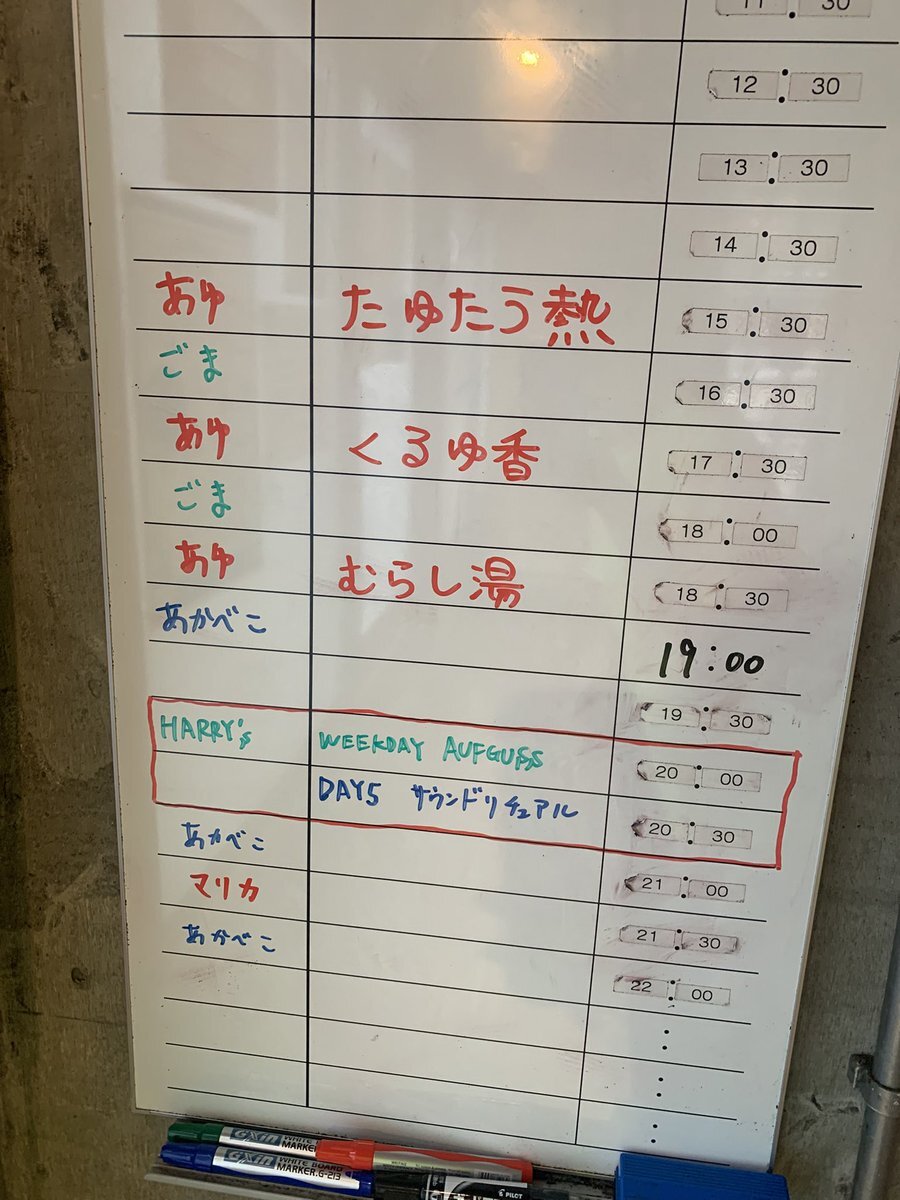 11:30
12:30
13:30
14:30
あゆ たゆたう熱 15:30
ごま 16:30
あゆ くるゆ香 17:30
ごま 18:00
あゆ むらし湯 18:30
あかべこ 19:00
19:30
HARRY's WEEKDAY AUFGUSS 20:00
DAY5 サウンドリチュアル 20:30
あかべこ 21:00
マリカ 21:30
あかべこ 22:00
:
:
:
GXin WHITE B
MARKER
GXin WHITE BOARD
MARKER.G-213
PILOT